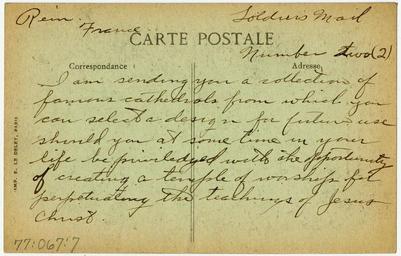 Reim.
France
Soldiers Mail
CARTE POSTALE
Number two (2)
Correspondance
Adresse
I am sending you a collection of
famous cathedrals from which you
can select a design for future use
should you at some time in your
life be priviledged with the opportunity
of creating a temple of worship fit
perpetuating the teachings of Jesus
Christ.
IMP. E. LE DELEY, PARIS
77:067:7